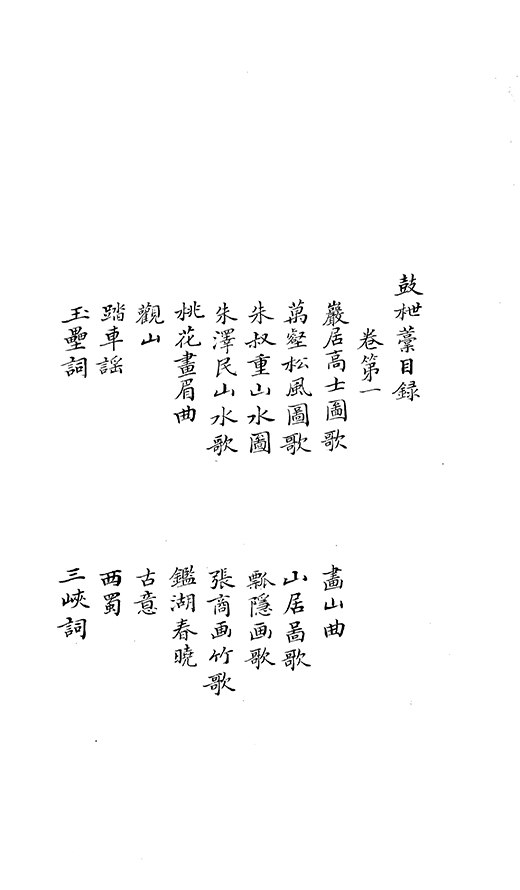 鼓枻藁目録
卷第一
巖居高士圖歌
畵山曲
萬壑松風圖歌
山居啚歌
朱叔重山水圖
瓢隱画歌
朱澤民山水歌
張商画竹歌
桃花畫眉曲
鑑湖春曉
觀山
古意
踏車謡
西蜀
玉壘詞
三峽詞